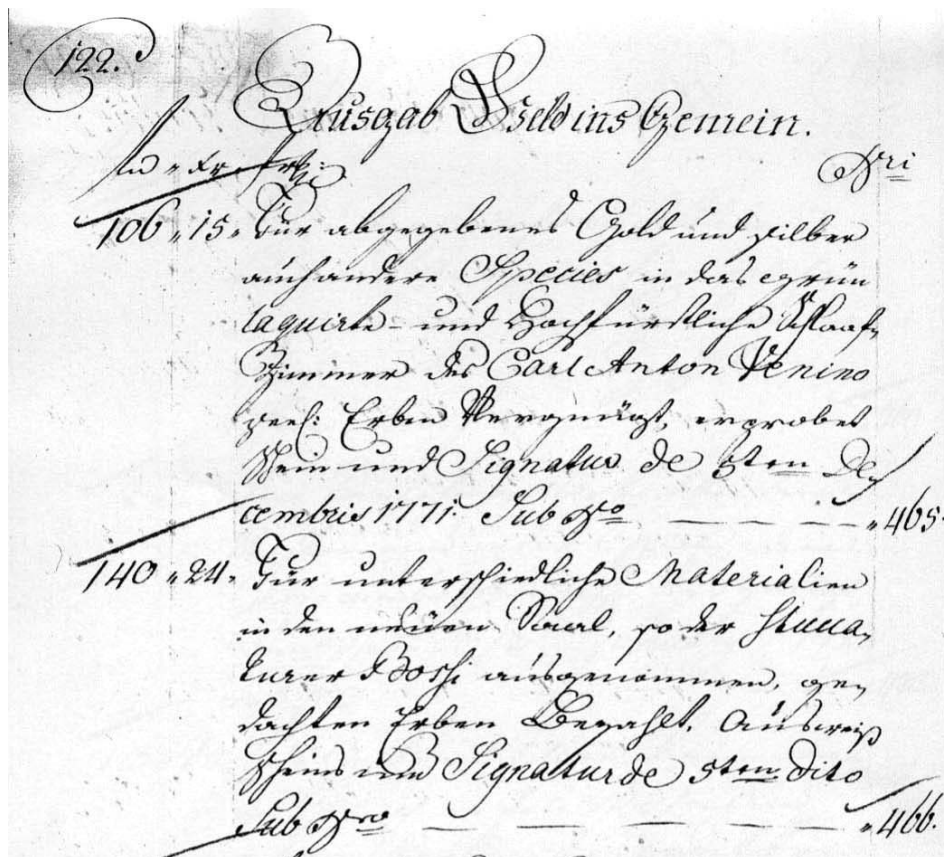 122.
Ausgab Geld ins Gemein.
Nri
106 " 15 " Für abgegebenes Gold und Silber
auch andere Species in das grün
laquirte- und Hochfürstliche Schlaaf-
Zimmer des Carl Anton Venino
seel: Erben Vergnügt, erprobet
Schein und Signatur de 5ten De-
cembris 1771. Sub Nro — — — — " 465.
140 " 24 " Für unterschiedliche Materialien
in den neüen Saal, so der Stucca-
turer Bossi ausgenommen, ge-
dachten Erben Bezahlt. Ausweiß
Scheins und Signatur de 5ten dito
Sub Nro — — — — — " 466.